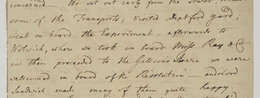 We set out early from the
some of the Transports, visited Deptford yard,
went on board the Experiment — afterwards to
Wolwich, where we took on board Miss Ray & Co
and then proceeded to the Galleons where we were
welcomed on board of the Resolution — and Lord
Sandwich made many of them quite happy.